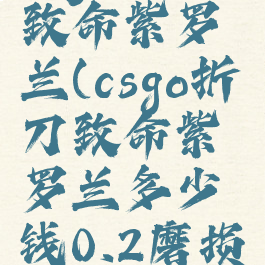 致命紫罗
兰(csgo折
刀致命紫
罗兰多少
钱0.2磨损